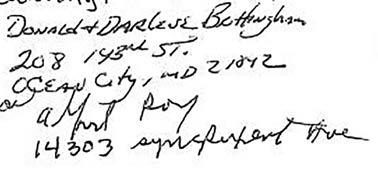 Donald + Darlene Bettingham
208 143rd ST.
OCEAN City, MD 21842
Albert Roy
14303 Sinepuxent Ave